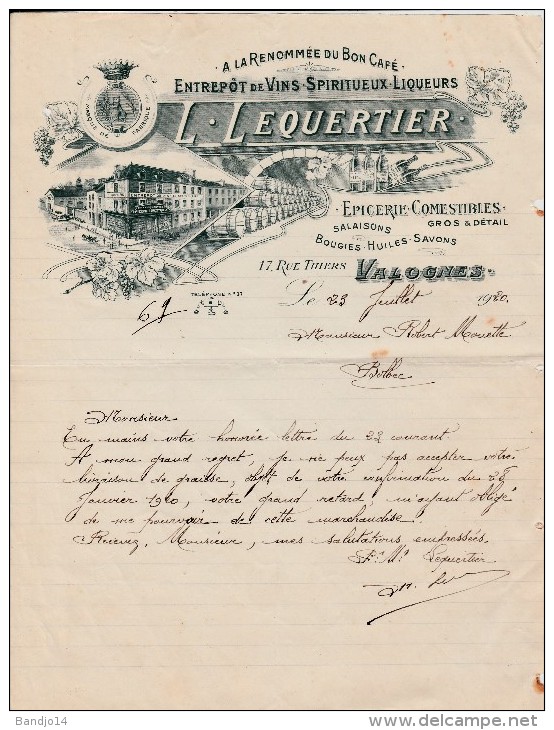 A LA RENOMMÉE DU BON CAFÉ
ENTREPÔT DE VINS · SPIRITUEUX · LIQUEURS
MARQUE DE FABRIQUE
L. LEQUERTIER
EPICERIE · COMESTIBLES
SALAISONS GROS & DÉTAIL
BOUGIES · HUILES · SAVONS
17, RUE THIERS VALOGNES
TÉLÉPHONE N° 37
Le 23 Juillet 1920.
Monsieur Robert Monette
Bolbec
Monsieur
En mains votre honorée lettre du 22 courant.
A mon grand regret, je ne peux pas accepter votre
livraison de graisse, objet de votre confirmation du 28
Janvier 1920, votre grand retard, m'ayant obligé
de me pourvoir de cette marchandise.
Recevez, Monsieur, mes salutations empressées.
Lequertier
Bandjo14
www.delcampe.net